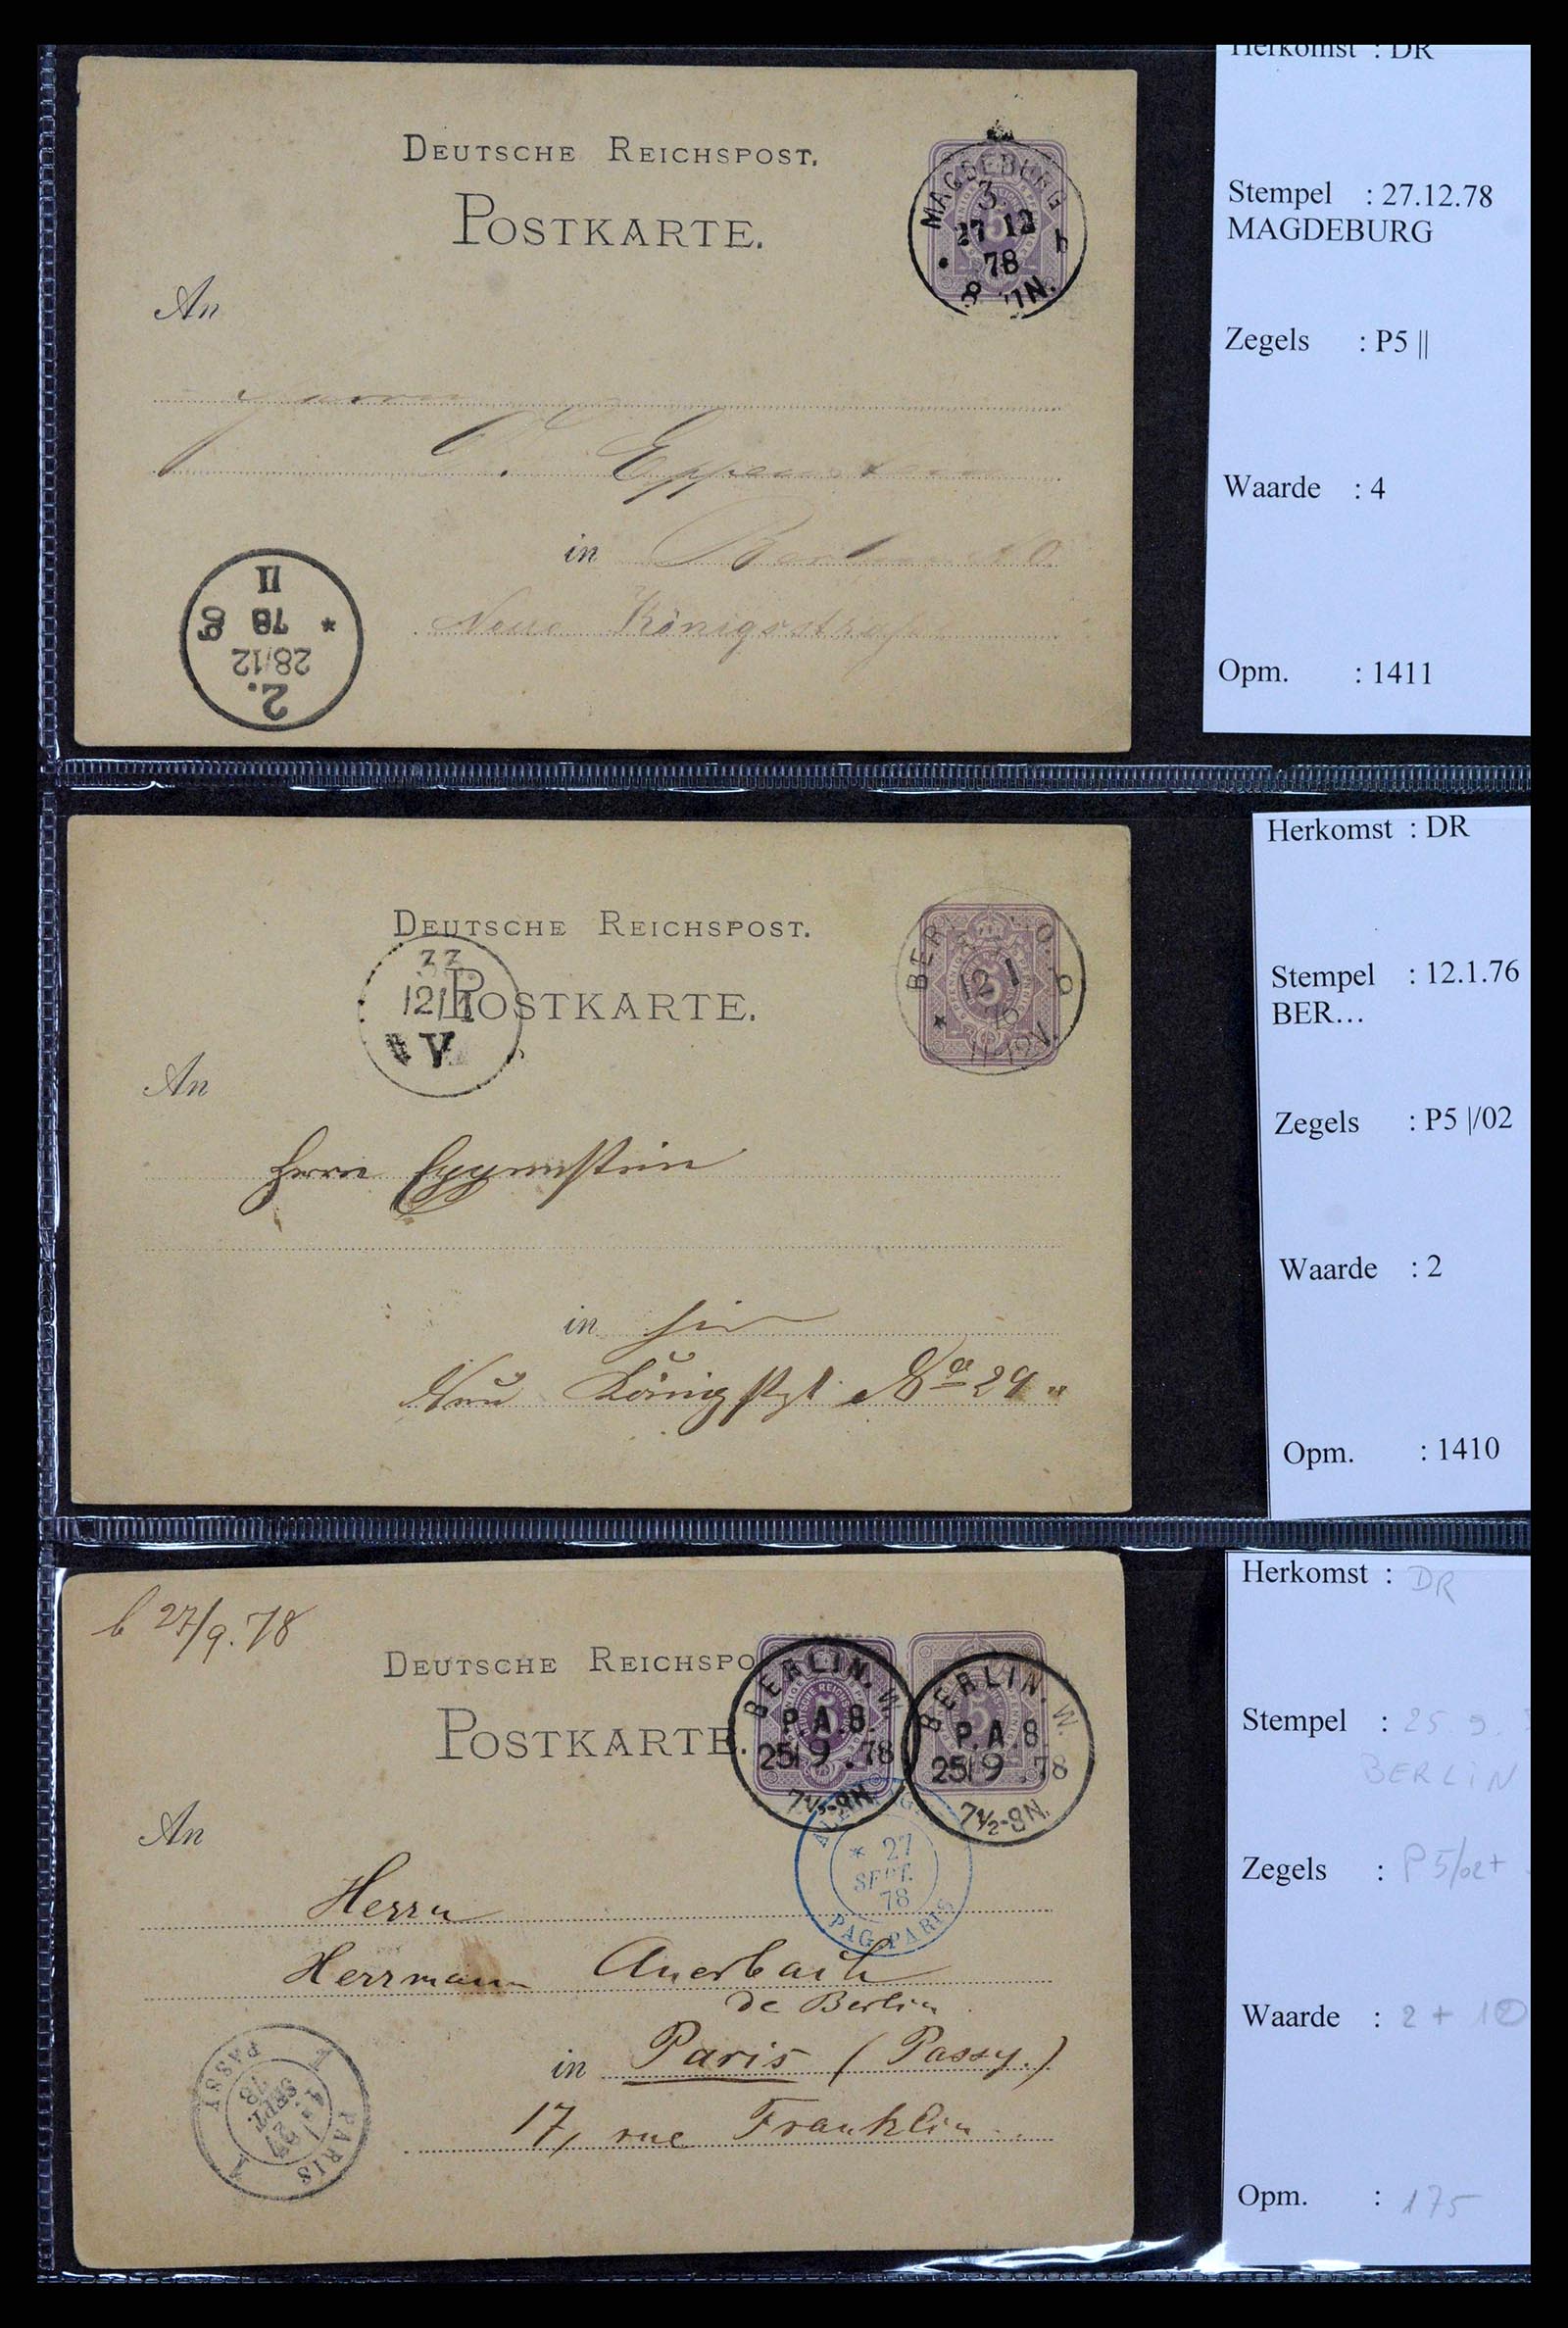 DEUTSCHE REICHSPOST.
POSTKARTE.
MAGDEBURG
3.
27 12
78
An
Eppenstein
in Berlin N.O.
Neue Königsstraße
II
78
28/12
2.
Herkomst : DR
Stempel : 27.12.78
MAGDEBURG
Zegels : P5 ||
Waarde : 4
Opm. : 1411
DEUTSCHE REICHSPOST.
POSTKARTE.
33
12/1
V.
BER
O.
12 1
76
11-12V.
An
Herrn Eppenstein
in hier
Neue Königstr. No 29
Herkomst : DR
Stempel : 12.1.76
BER...
Zegels : P5 |/02
Waarde : 2
Opm. : 1410
b 27/9.78
DEUTSCHE REICHSPO
POSTKARTE.
BERLIN. W.
P.A.8.
25/9.78
7½-8N.
BERLIN. W.
P.A.8.
25/9.78
7½-8N.
* 27
SEPT.
78
PAG. PARIS
An
Herrn
Herrmann Auerbach
de Berlin
in Paris (Passy.)
17, rue Franklin
PASSY
27
SEPT.
78
PARIS
Herkomst : DR
Stempel : 25 9.
BERLIN
Zegels : P5/02+
Waarde : 2 + 10
Opm. : 175